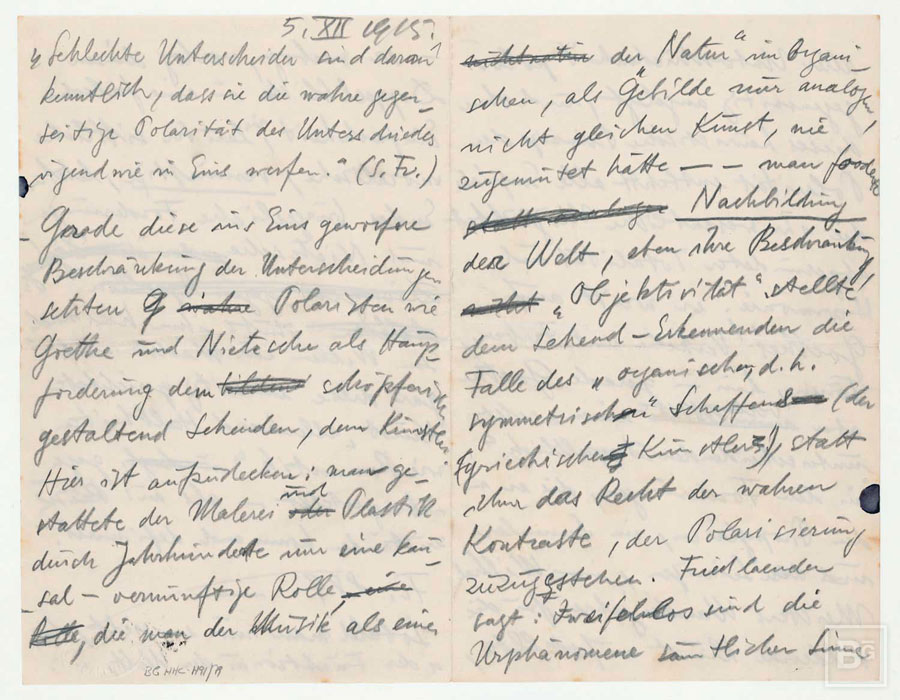 5. XII 1915.
„Schlechte Unterscheider sind daran
kenntlich, dass sie die wahre gegen-
seitige Polarität des Unterschiedes
irgendwie in Eins werfen.“ (S. Fr.)
Gerade diese ins Eins geworfene
Beschränkung der Unterscheidungen
setzten G wahre Polaristen wie
Goethe und Nietzsche als Haupt-
forderung dem bildend schöpferisch
gestaltend Sehenden, dem Künstler.
Hier ist aufzudecken: man ge-
stattete der Malerei oder und Plastik
durch Jahrhunderte nur eine kau-
sal-vernünftige Rolle, eine
Rolle, die man der Musik als einer
BG HHC H91/79
der Natur“ im Organi-
schen, als Gebilde nur analogen,
nicht gleichen Kunst, nie
zugemutet hätte — — man forderte
statt analoger Nachbildung
der Welt, eben ihre Beschränkung!
nicht „Objektivität“ stellte
dem Sehend-Erkennenden die
Falle des „organischen, d. h.
symmetrischen“ Schaffens (der
griechischen Künstler), statt
ihm das Recht der wahren
Kontraste, der Polarisierung
zuzugestehen. Friedlaender
sagt: Zweifellos sind die
Urphänomene sämtlicher Sinne
BG